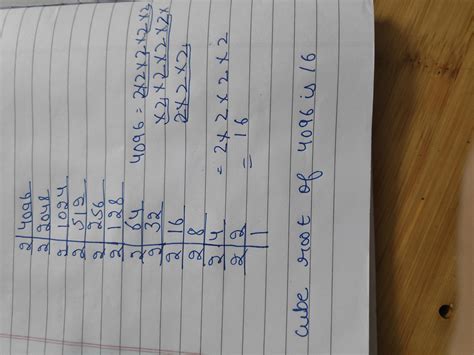 2 | 4096
2 | 2048
2 | 1024
2 | 512
2 | 256
2 | 128
2 | 64
2 | 32
2 | 16
2 | 8
2 | 4
2 | 2
| 1
4096 = 2×2×2×2×2
×2×2×2×2×
2×2×2
= 2×2×2×2
= 16
cube root of 4096 is 16